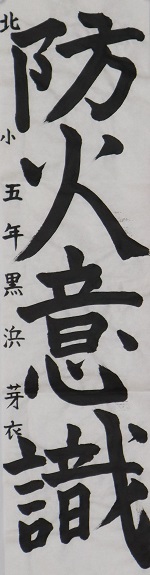 防火意識
北小五年黒浜芽衣